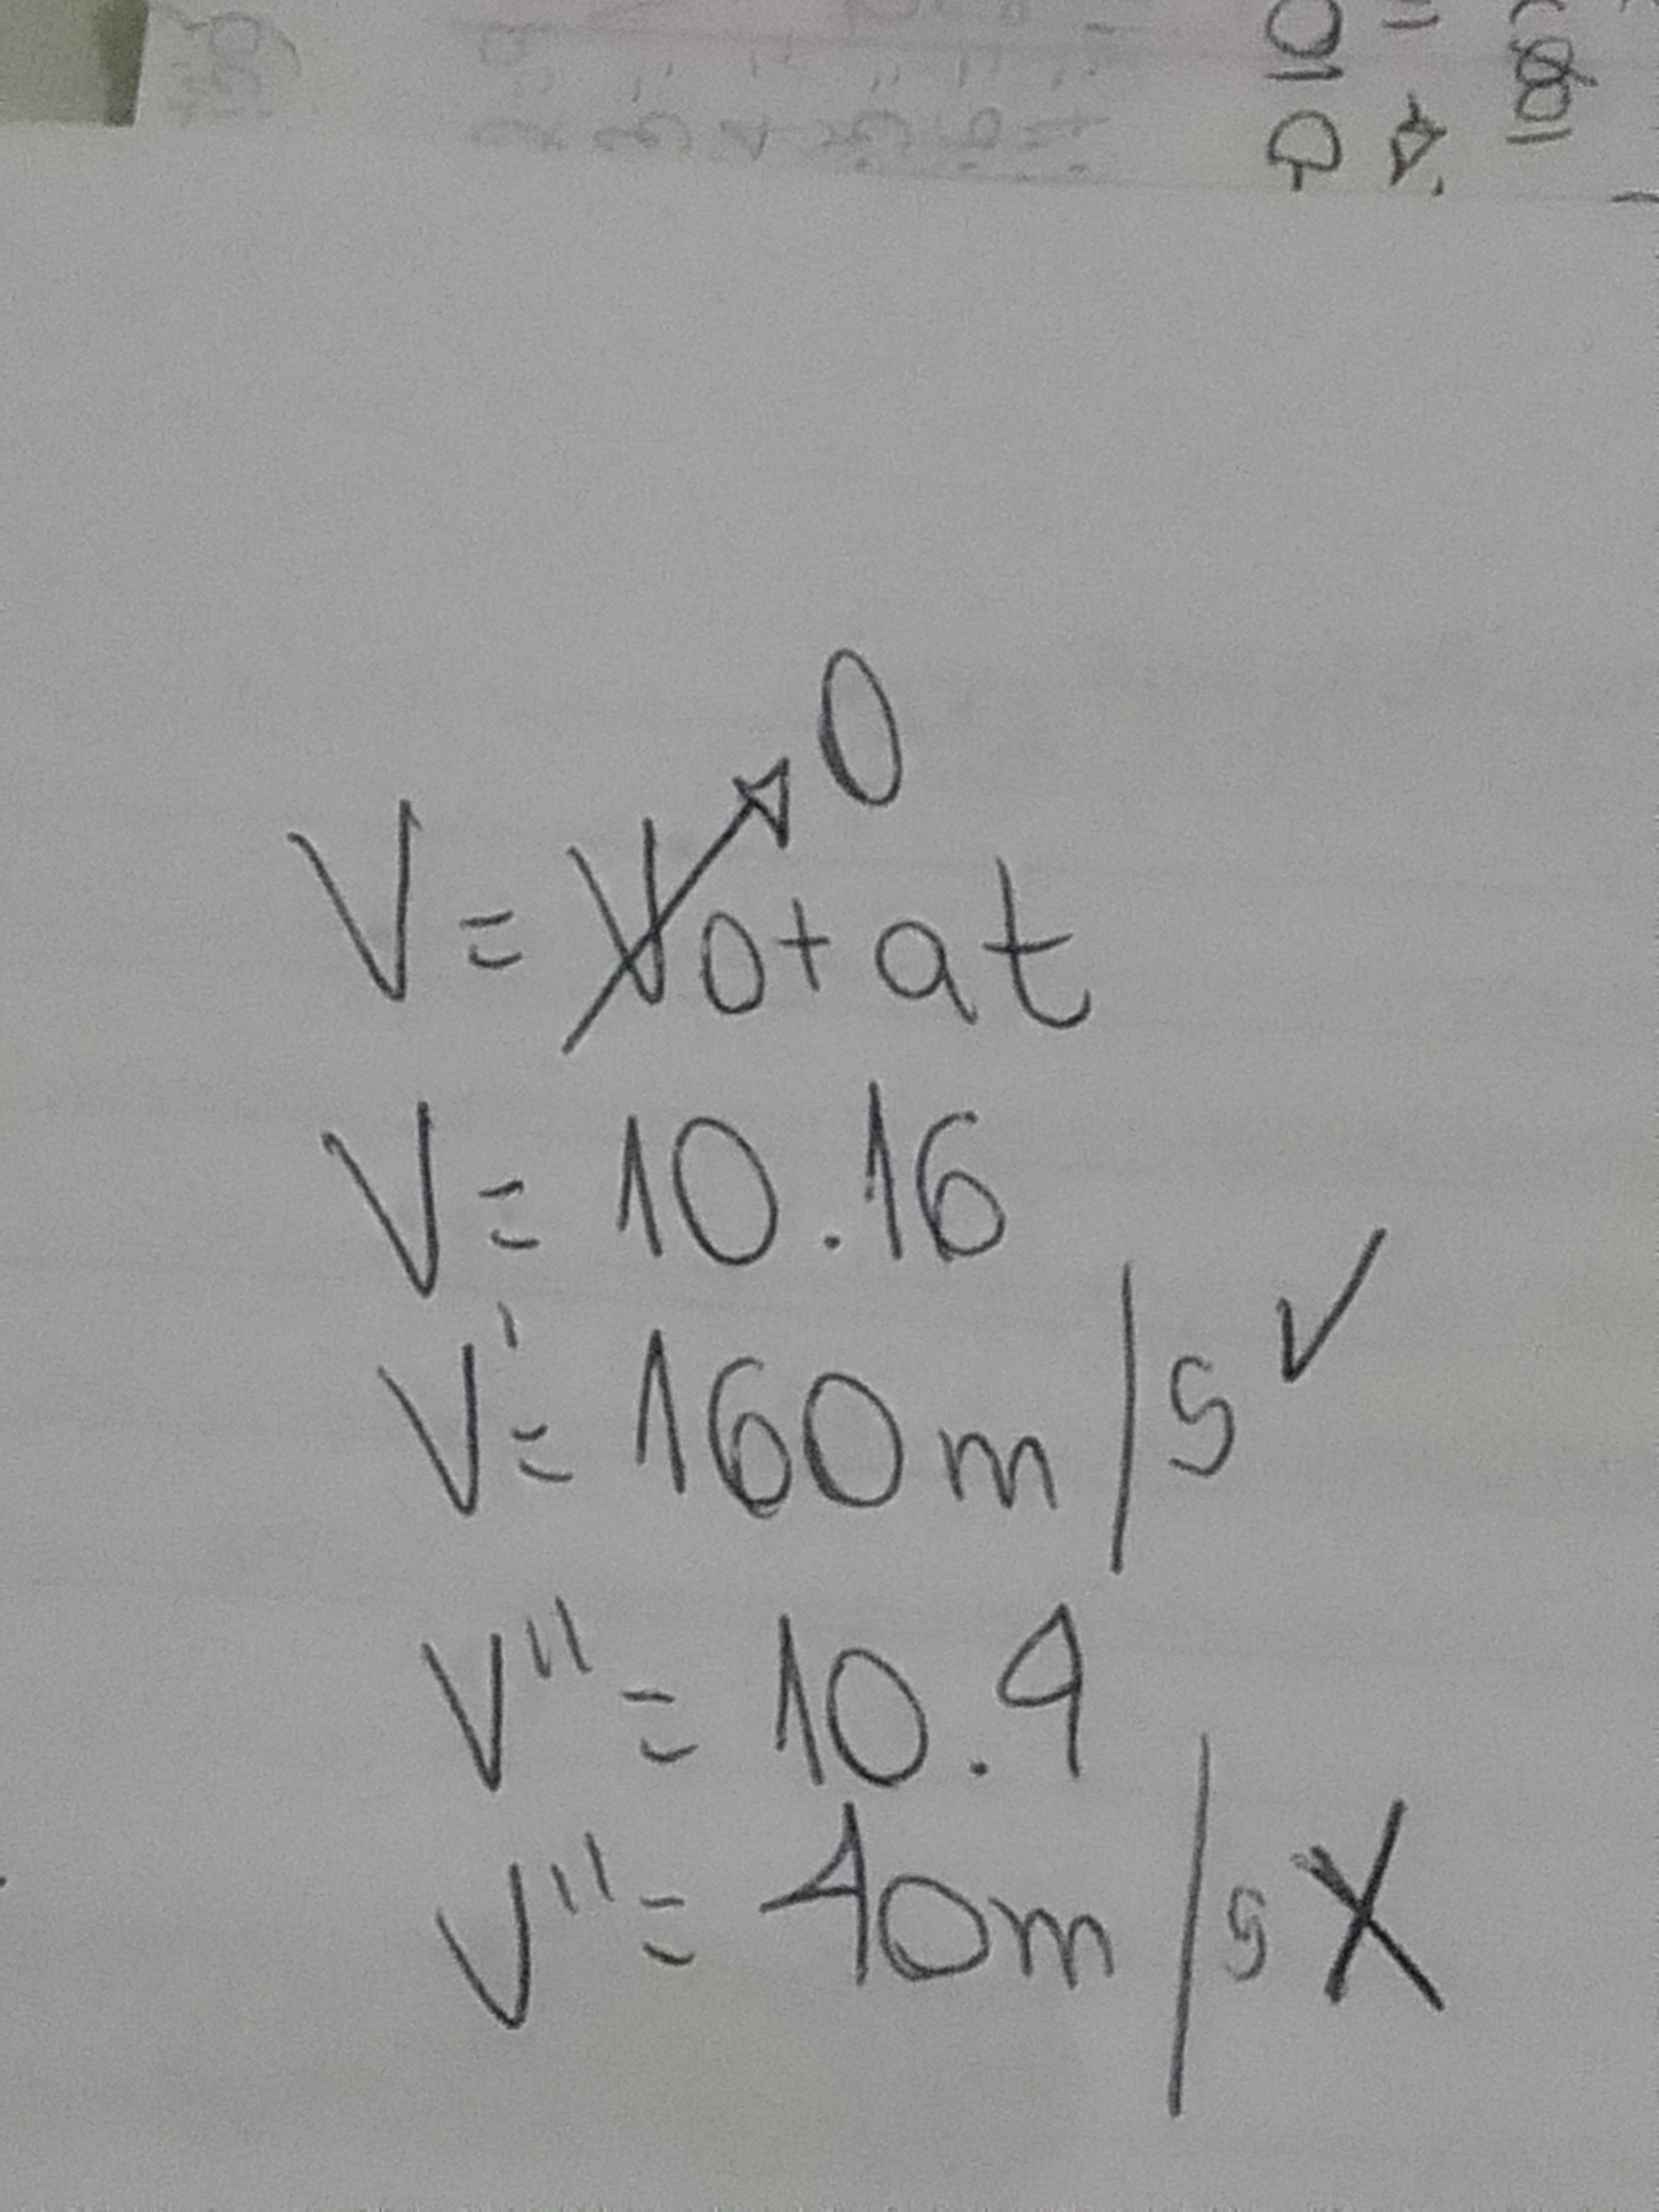 V = V0 + at → 0
V = 10.16
V' = 160m/s ✓
V'' = 10.4
V'' = 40m/s X